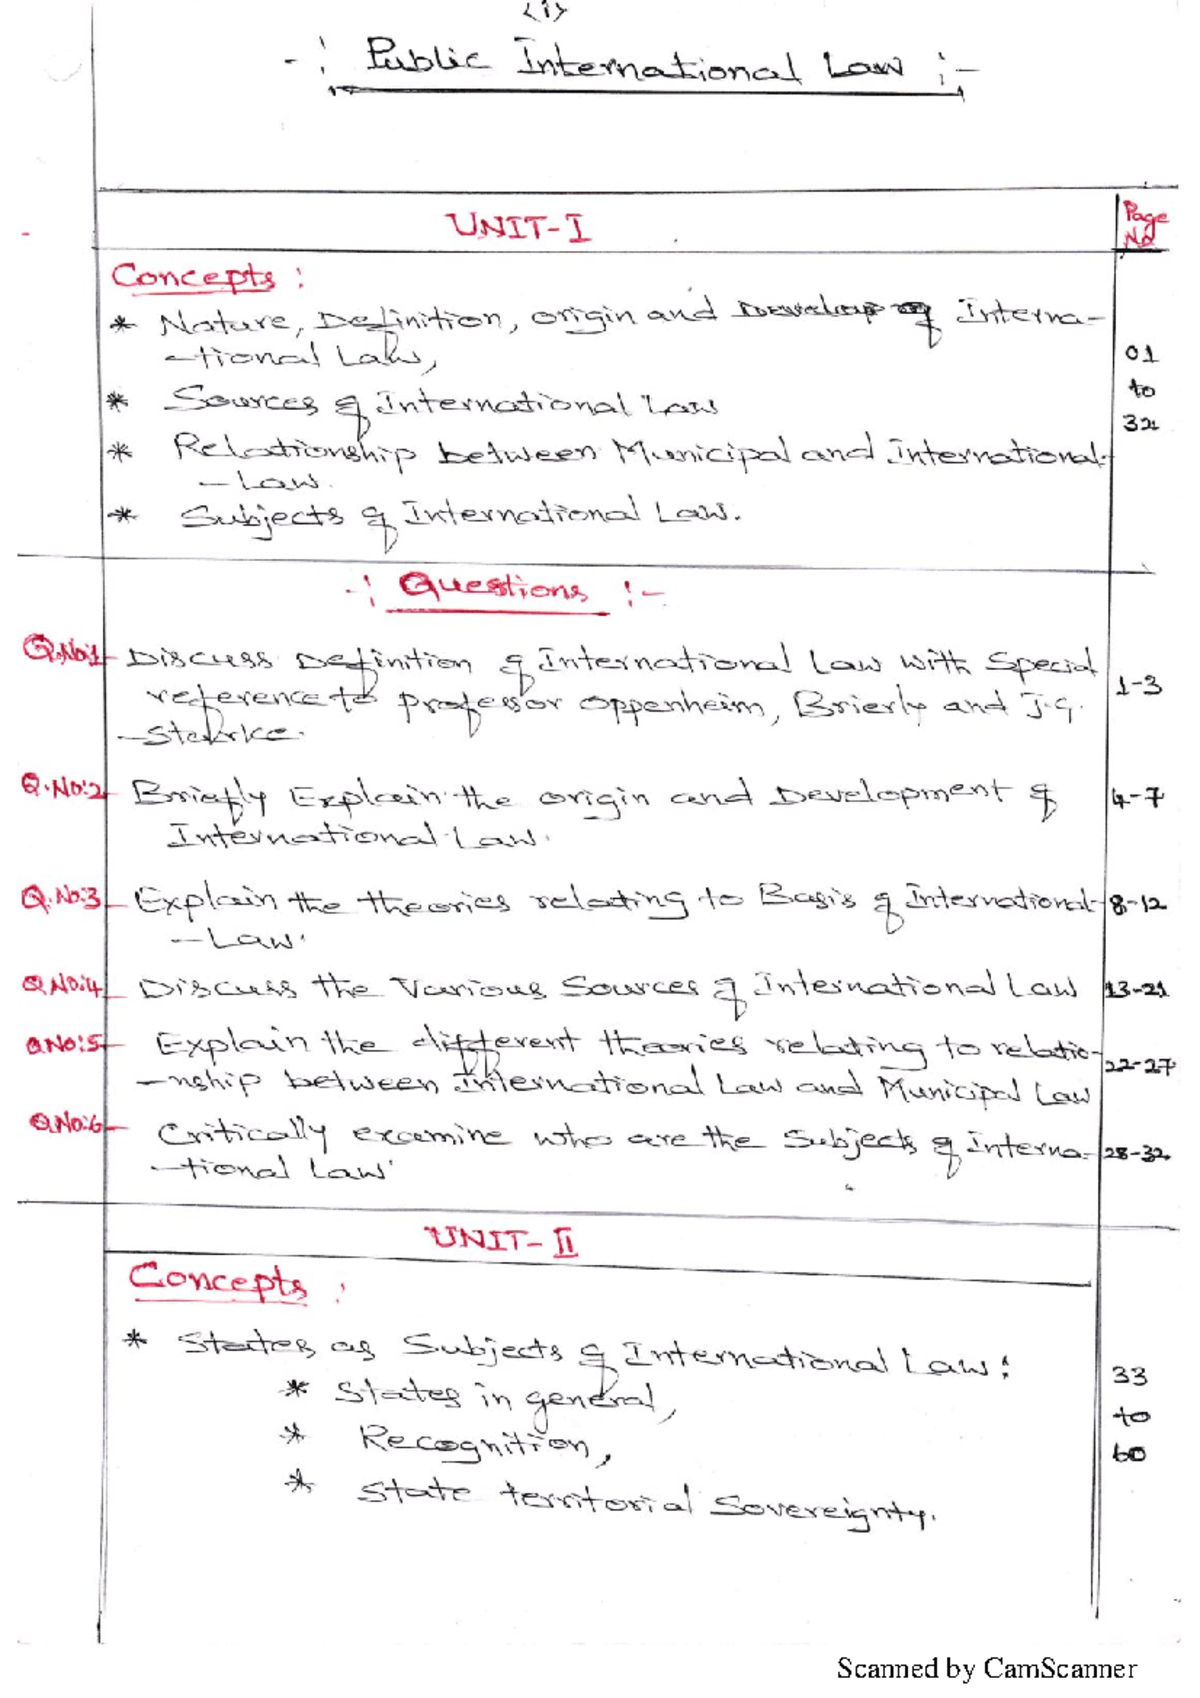 <i>
-: Public International Law :-
UNIT-I
Page No
Concepts :
* Nature, Definition, origin and Develop of Interna-
-tional Law,
01
to
32
* Sources of International Law
* Relationship between Municipal and International
-Law.
* Subjects of International Law.
-: Questions :-
Q.No:1 Discuss Definition of International Law with Special
reference to professor Oppenheim, Brierly and J.G.
-Starke.
1-3
Q.No:2 Briefly Explain the origin and Development of
International Law.
4-7
Q.No:3 Explain the theories relating to Basis of International
-Law.
8-12
Q.No:4 Discuss the Various Sources of International Law 13-21
Q.No:5 Explain the different theories relating to relatio-
-nship between International Law and Municipal Law
22-27
Q.No:6 Critically examine who are the Subjects of Interna-
-tional Law
28-32
UNIT-II
Concepts :
* States as Subjects of International Law :
* States in general,
* Recognition,
* State territorial Sovereignty.
33
to
60
Scanned by CamScanner